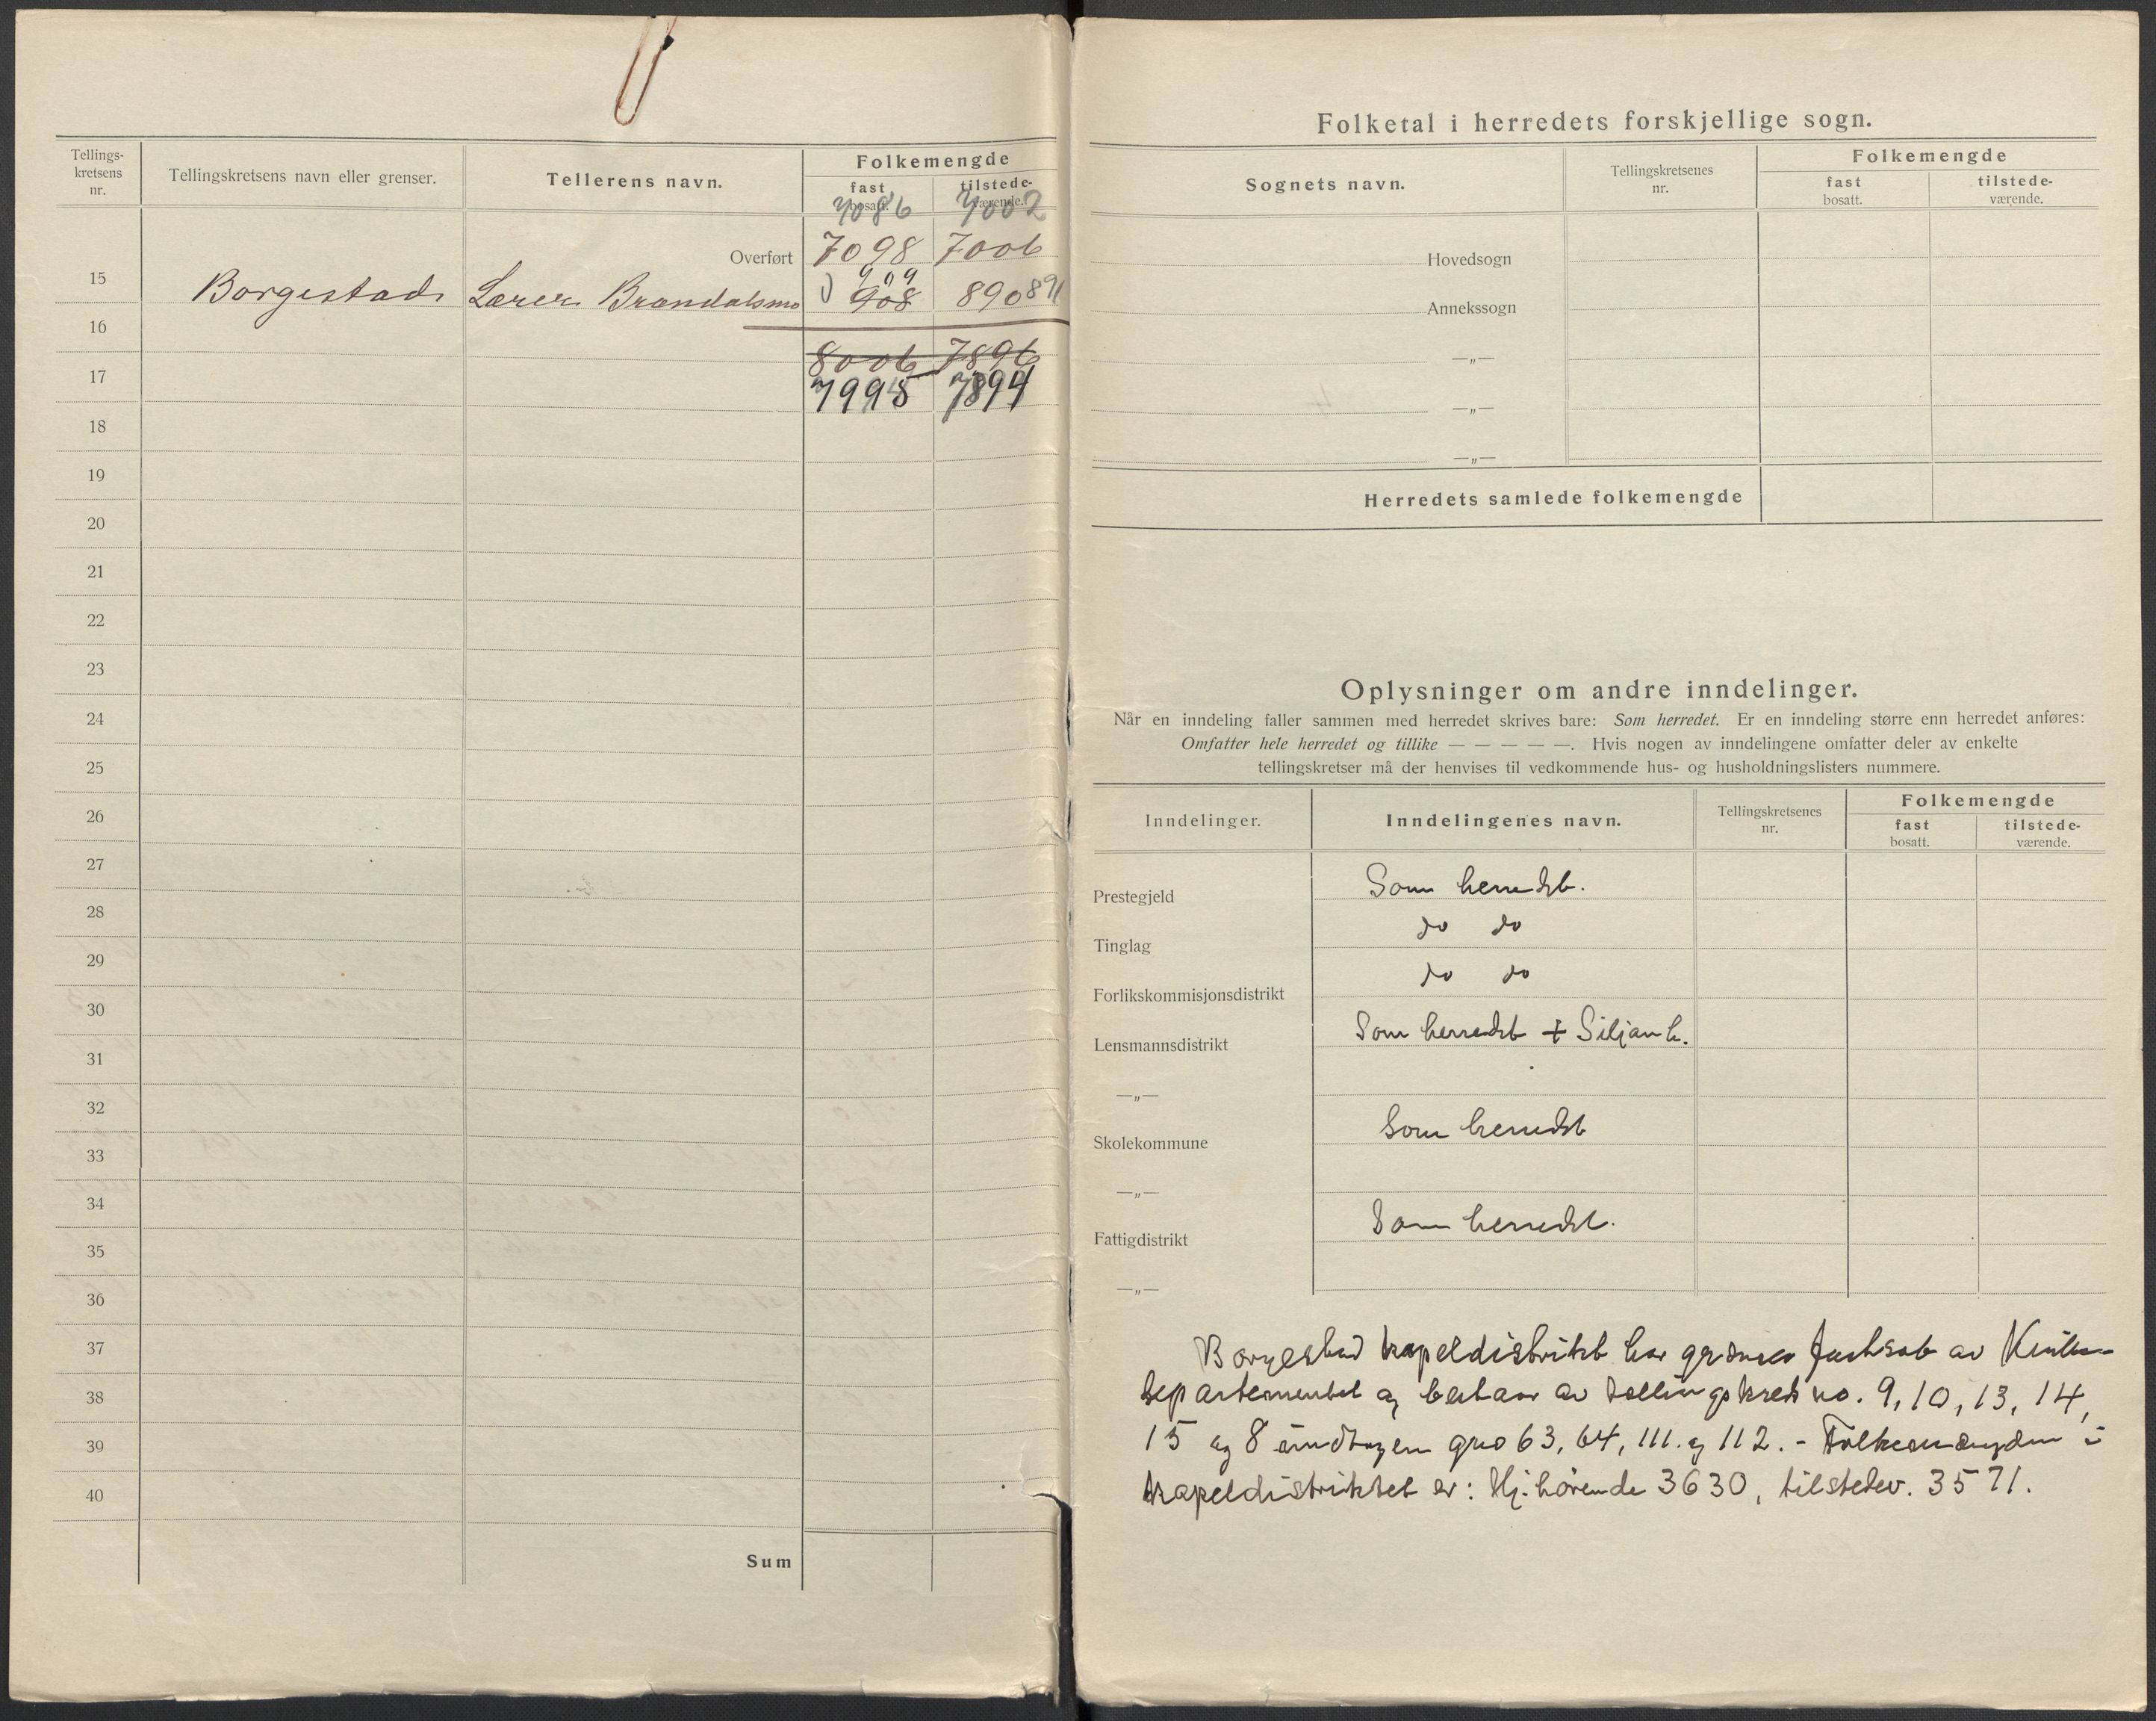 Tellings-
kretsens
nr.
Tellingskretsens navn eller grenser.
Tellerens navn.
Folkemengde
fast
bosatt.
tilstede-
værende.
7086 7002
Overført 7098 7006
909
15 Borgestad Lærer Brandalsmo 908 890 891
16
8006 7896
17 7995 7894
18
19
20
21
22
23
24
25
26
27
28
29
30
31
32
33
34
35
36
37
38
39
40
Sum
Folketal i herredets forskjellige sogn.
Sognets navn.
Tellingskretsenes
nr.
Folkemengde
fast
bosatt.
tilstede-
værende.
Hovedsogn
Annekssogn
—„—
—„—
—„—
Herredets samlede folkemengde
Oplysninger om andre inndelinger.
Når en inndeling faller sammen med herredet skrives bare: Som herredet. Er en inndeling større enn herredet anføres:
Omfatter hele herredet og tillike — — — — —. Hvis nogen av inndelingene omfatter deler av enkelte
tellingskretser må der henvises til vedkommende hus- og husholdningslisters nummere.
Inndelinger.
Inndelingenes navn.
Tellingskretsenes
nr.
Folkemengde
fast
bosatt.
tilstede-
værende.
Prestegjeld Som herredet.
Tinglag do do
Forlikskommisjonsdistrikt do do
Lensmannsdistrikt Som herredet + Siljan h.
—„—
Skolekommune Som herredet
—„—
Fattigdistrikt Som herredet.
—„—
Borgestad kapeldistrikt har grænser fastsat av Kirke-
departementet og bestaar av tællingskrets no. 9, 10, 13, 14,
15 og 8 undtagen gno 63, 64, 111 og 112. - Folkemængden i
kapeldistriktet er: Hj.hörende 3630, tilstedev. 3571.